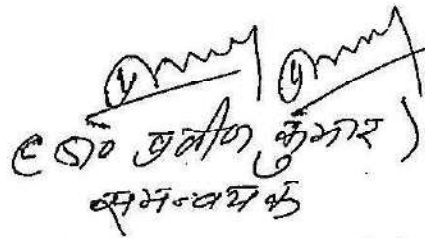 (डॉ० प्रवीण कुमार)
समन्वयक